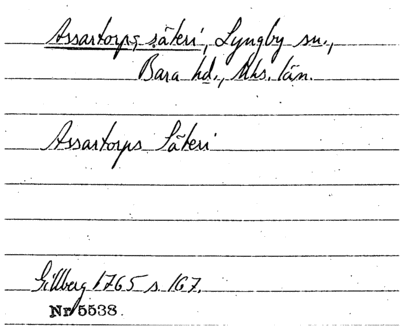 Assartorps säteri, Lyngby sn.,
Bara hd., Mhs. län.
Assartorps Säteri
Gillberg 1765 s. 167.
Nr 5538.